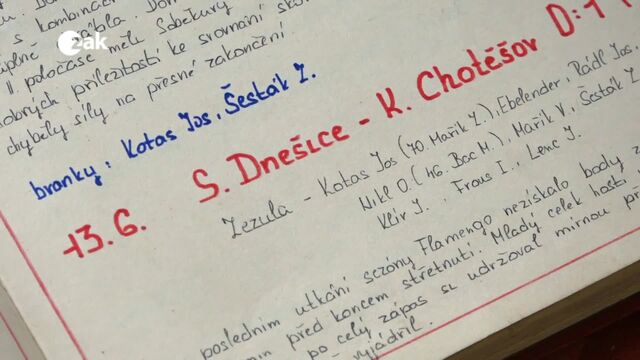 s kombinač
úplně
II poločase měli Soběkury
dobrých příležitostí ke srovnání sk
chyběly síly na přesné zakončení.
žak
branky: Kotas Jos, Šesták J.
13.6. S. Dnešice - K. Chotěšov D:1 1
Zezula - Kotas Jos (70. Mařík Z.), Ebelender, Rádl Jos.
Nikl O. (46. Bac M.), Mařík V., Šesták J
Klír J., Fraus I., Lenc J.
posledním utkání sezóny Flamengo nezískalo body z
min před koncem střetnutí. Mladý celek hostí
po celý zápas si udržoval mírnou př
vyjádřil.